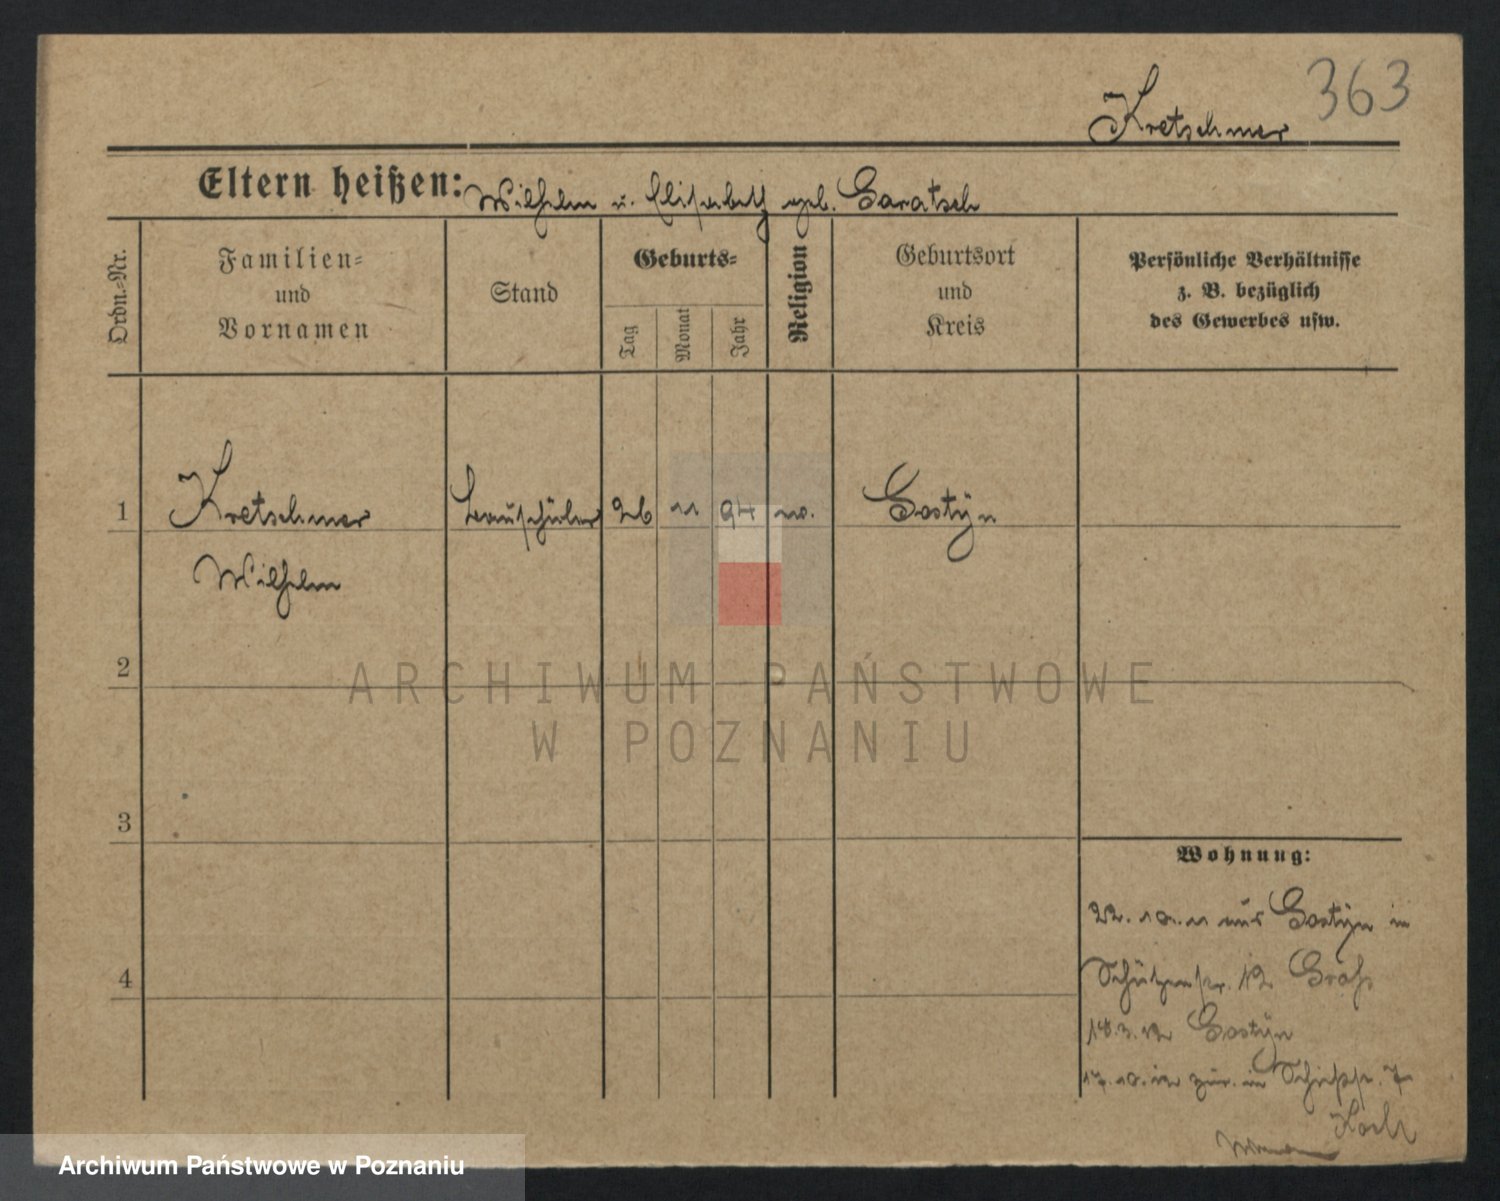 363
Kretschmer
Eltern heißen: Wilhelm u. Elisabeth geb. Garatsch
Ordn.-Nr.
Familien- und Vornamen
Stand
Geburts-
Tag
Monat
Jahr
Religion
Geburtsort und Kreis
Persönliche Verhältnisse z. B. bezüglich des Gewerbes usw.
1 Kretschmer Bauschüler 26 11 94 Gostÿn
Wilhelm
2
3
4
Wohnung:
22. 10. 11 aus Gostÿn in
Schützenstr. 12
18.3.12 Gostÿn
17. 10. 12 zur. in 7
ARCHIWUM PAŃSTWOWE
W POZNANIU
Archiwum Państwowe w Poznaniu